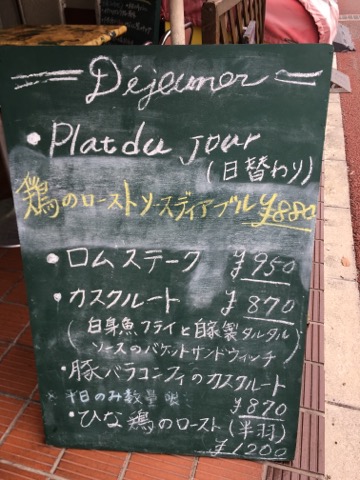 Déjeuner
・Plat du jour
(日替わり)
鶏のローストソースディアブル ¥880
・ロムステーク ¥950
・カスクルート ¥870
(白身魚フライと自家製タルタル
ソースのバケットサンドウィッチ)
・豚バラコンフィのカスクルート
※平日のみ数量限 ¥870
・ひな鶏のロースト(半羽)
¥1200